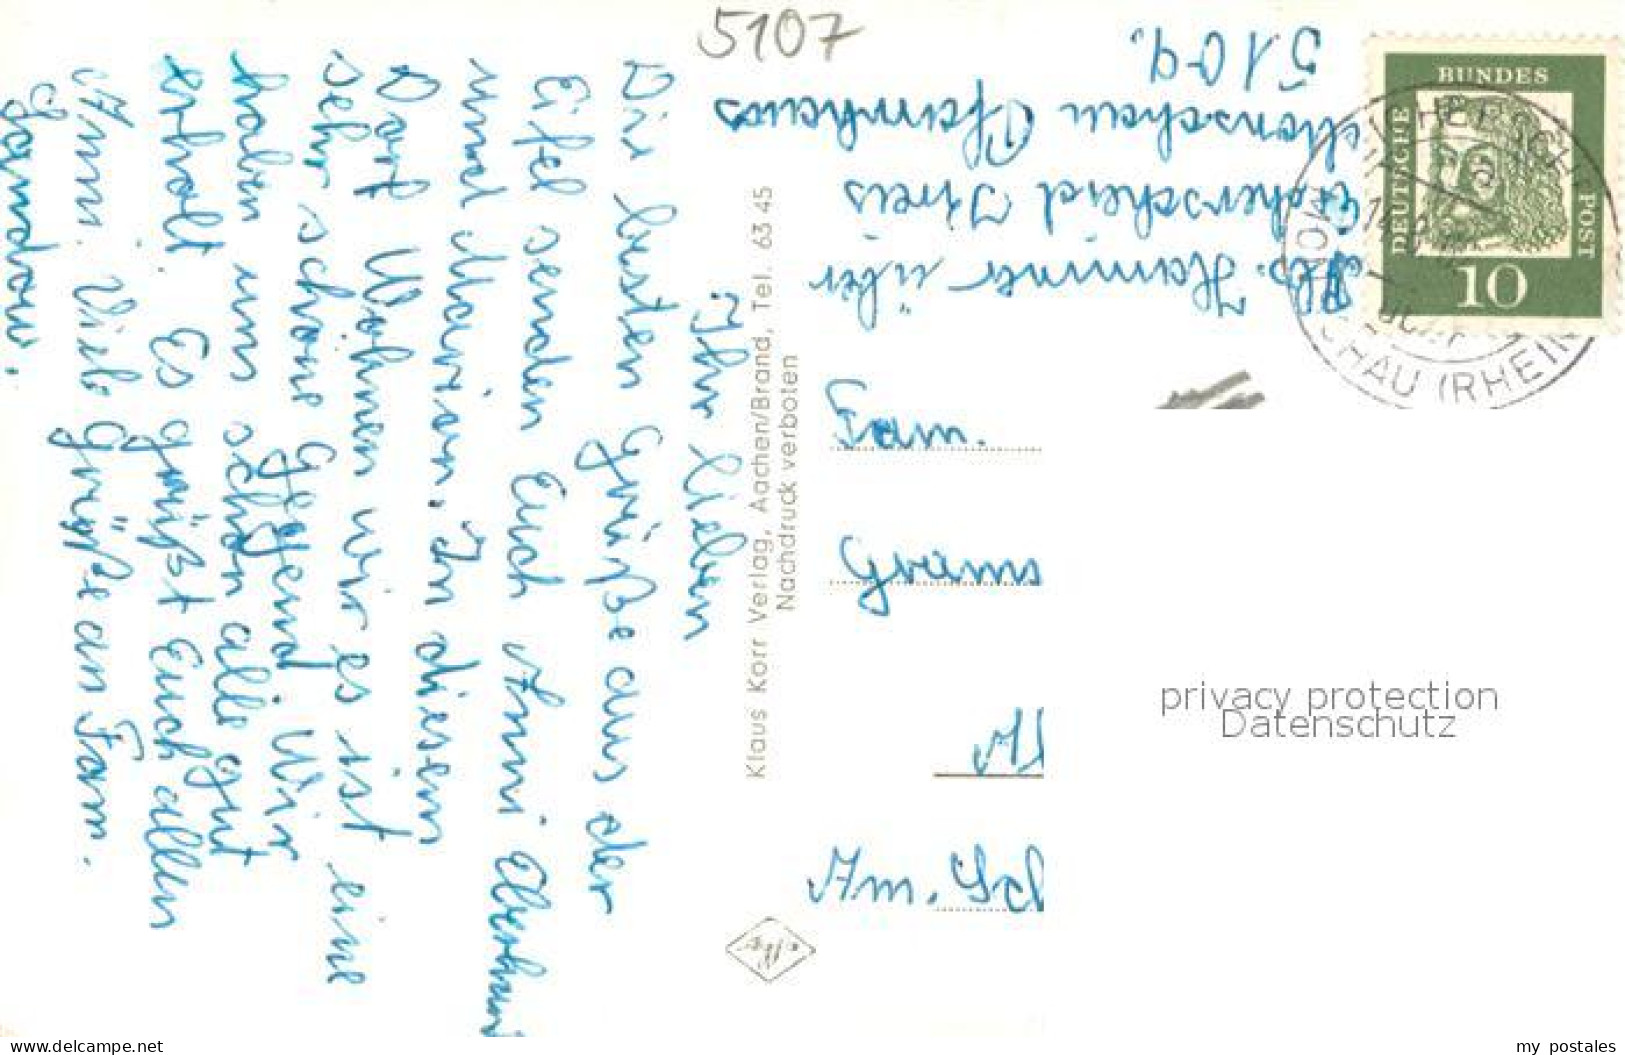 5107
Ihr lieben
Die besten Grüße aus der
Eifel senden Euch Anni Eberhard
und Marian. In diesem
Dorf Wohnen wir es ist eine
sehr schöne Gegend Wir
haben uns schon alle gut
erholt. Es grüßt Euch allen
Anni. Viele Grüße an Fam.
Abs. Hammer über
Eicherscheid Kreis
Monschau Pfarrhaus
5109.
Klaus Korr Verlag, Aachen/Brand, Tel. 63 45
Nachdruck verboten
An
Fam.
DEUTSCHE
BUNDES
POST
10
MONSCHAU (RHEIN
privacy protection
Datenschutz
www.delcampe.net
my_postales